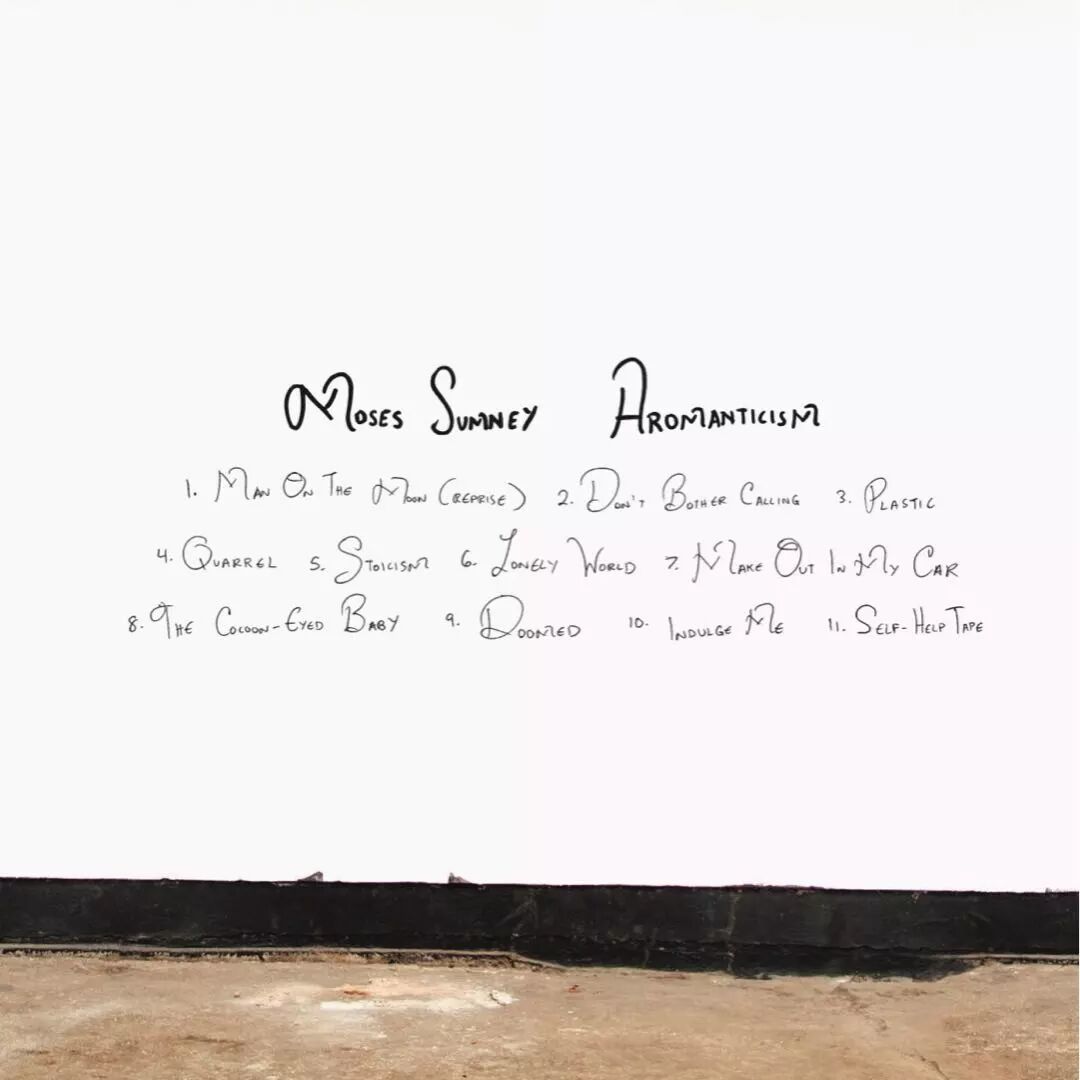 Moses Sumney Aromanticism
1. Man On The Moon (reprise) 2. Don't Bother Calling 3. Plastic
4. Quarrel 5. Stoicism 6. Lonely World 7. Make Out In My Car
8. The Cocoon-Eyed Baby 9. Doomed 10. Indulge Me 11. Self-Help Tape